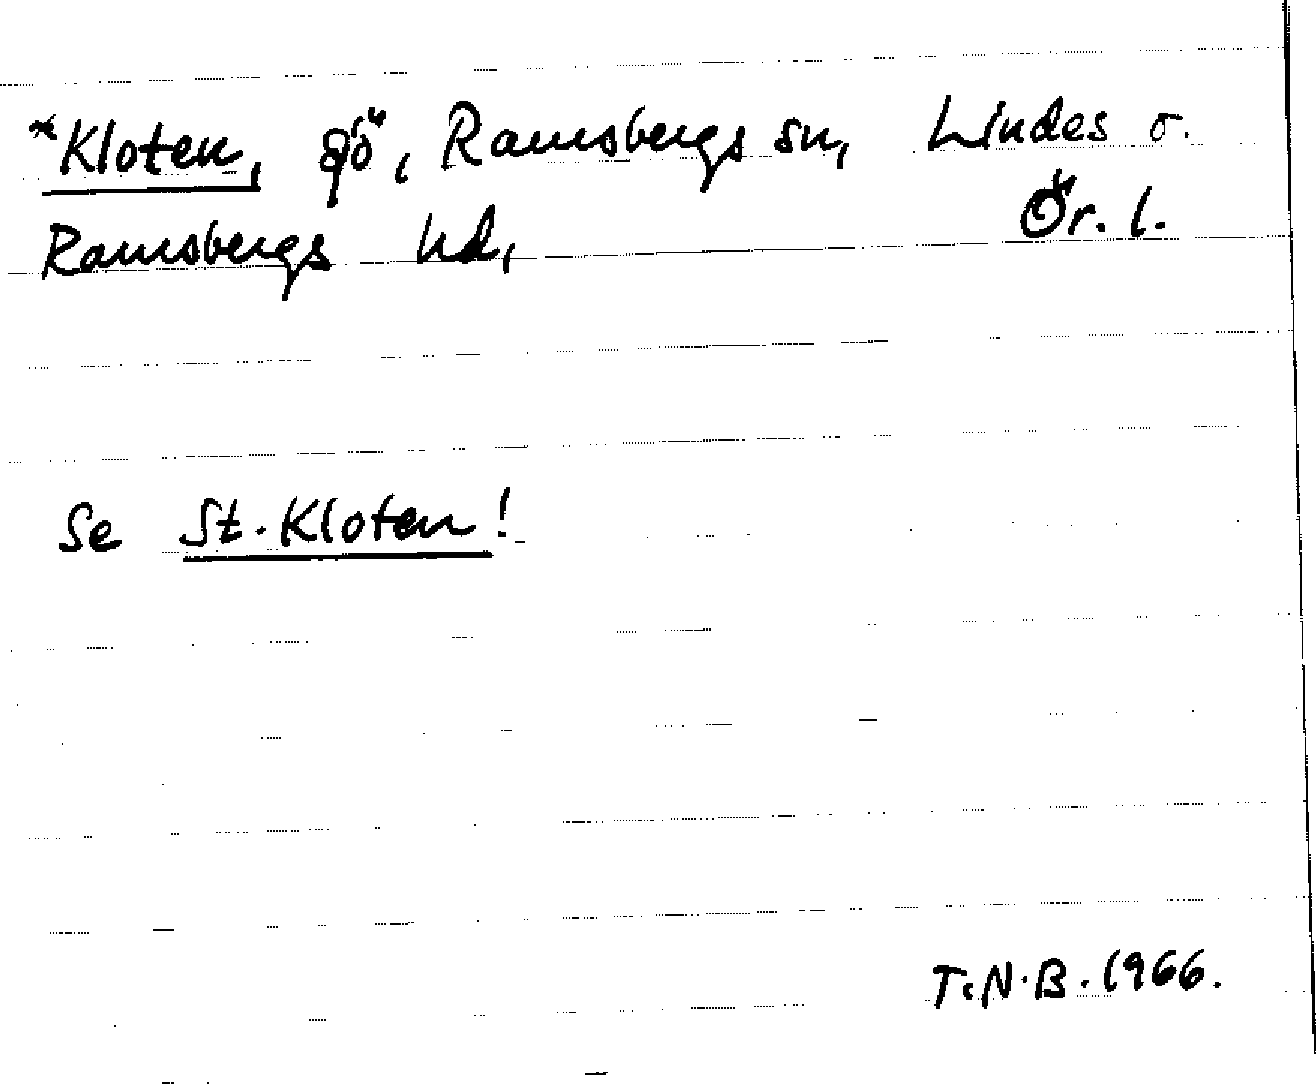 *Kloten, sjö, Ramsbergs sn, Lindes o.
Ramsbergs hd, Ör. l.
Se St. Kloten!
T.N.B. 1966.